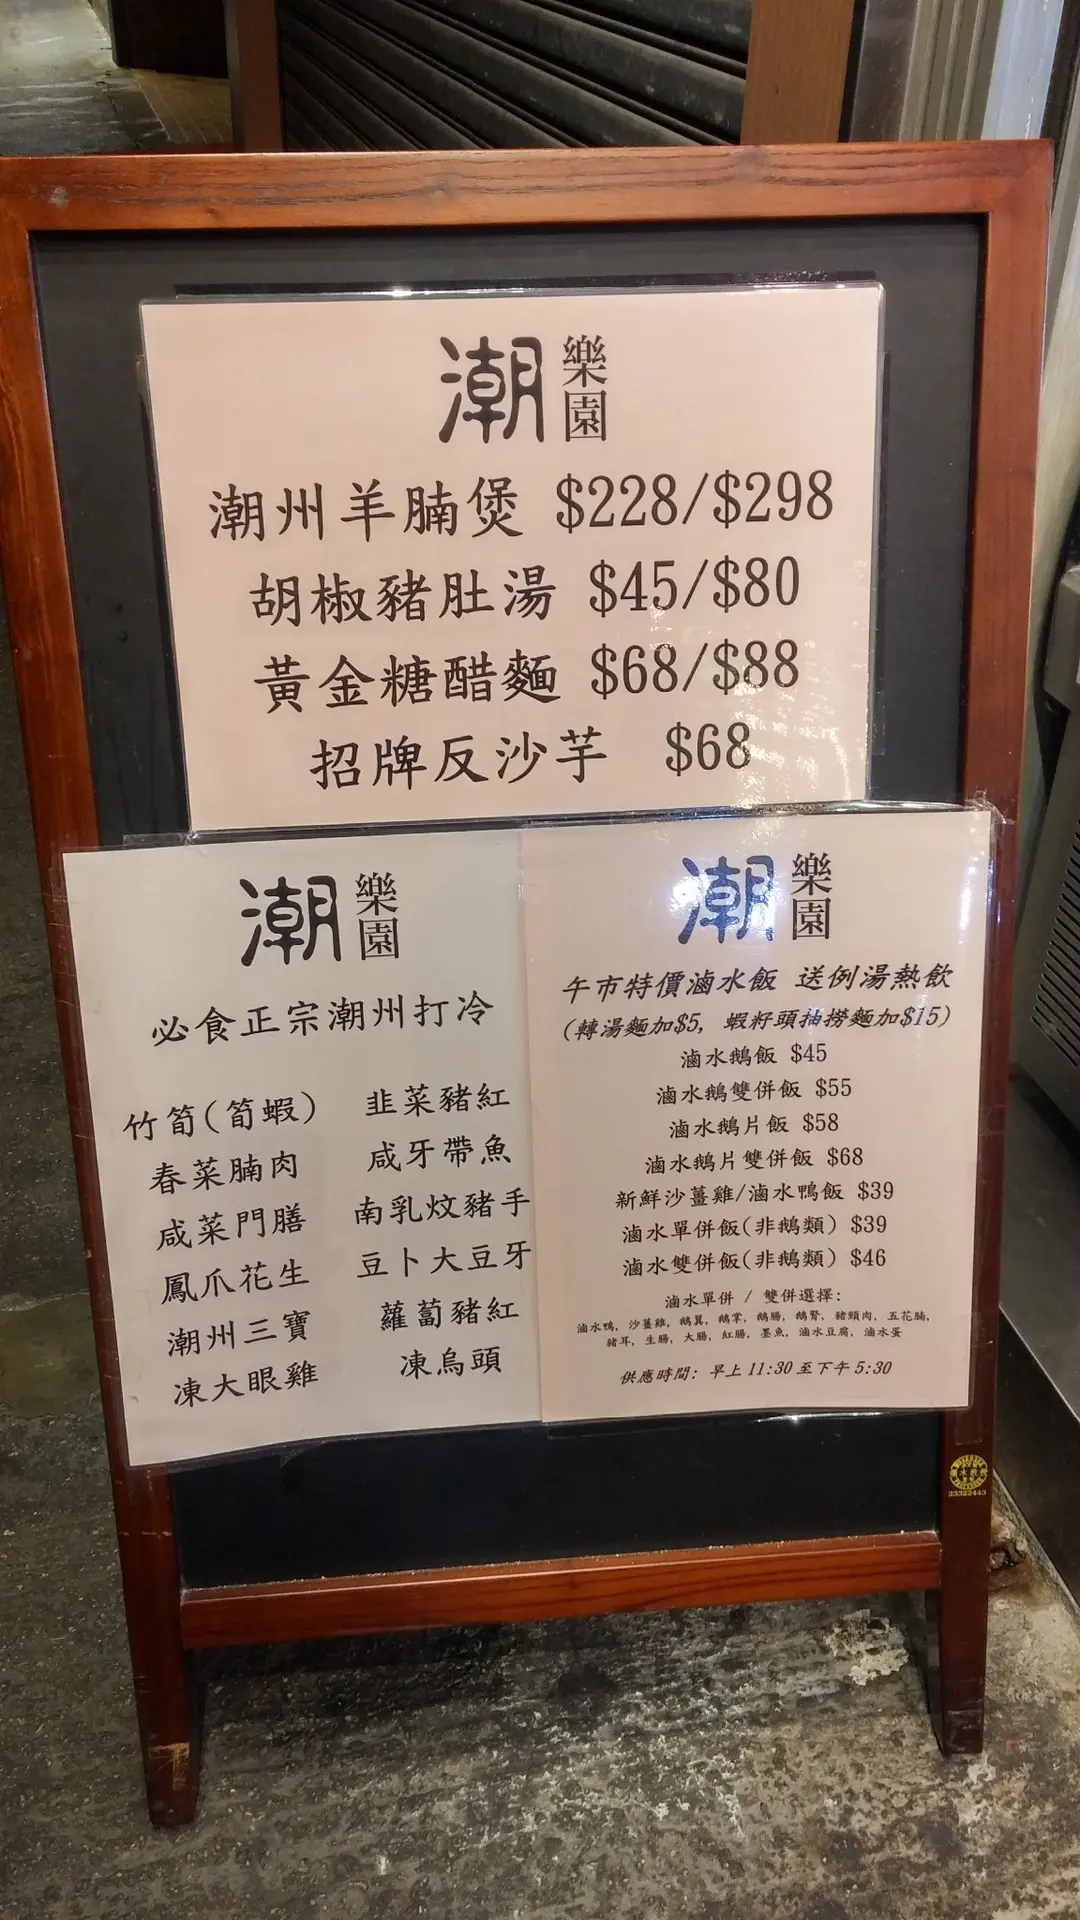 潮樂園
潮州羊腩煲 $228/$298
胡椒豬肚湯 $45/$80
黃金糖醋麵 $68/$88
招牌反沙芋 $68
潮樂園
必食正宗潮州打冷
竹筍(筍蝦) 韭菜豬紅
春菜腩肉 咸牙帶魚
咸菜門膳 南乳炆豬手
鳳爪花生 豆卜大豆牙
潮州三寶 蘿蔔豬紅
凍大眼雞 凍烏頭
潮樂園
午市特價滷水飯 送例湯熱飲
(轉湯麵加$5, 蝦籽頭抽撈麵加$15)
滷水鵝飯 $45
滷水鵝雙併飯 $55
滷水鵝片飯 $58
滷水鵝片雙併飯 $68
新鮮沙薑雞/滷水鴨飯 $39
滷水單併飯(非鵝類) $39
滷水雙併飯(非鵝類) $46
滷水單併 / 雙併選擇:
滷水鴨, 沙薑雞, 鵝翼, 鵝掌, 鵝腸, 鵝腎, 豬頸肉, 五花腩,
豬耳, 生腸, 大腸, 紅腸, 墨魚, 滷水豆腐, 滷水蛋
供應時間: 早上 11:30 至下午 5:30
23322443